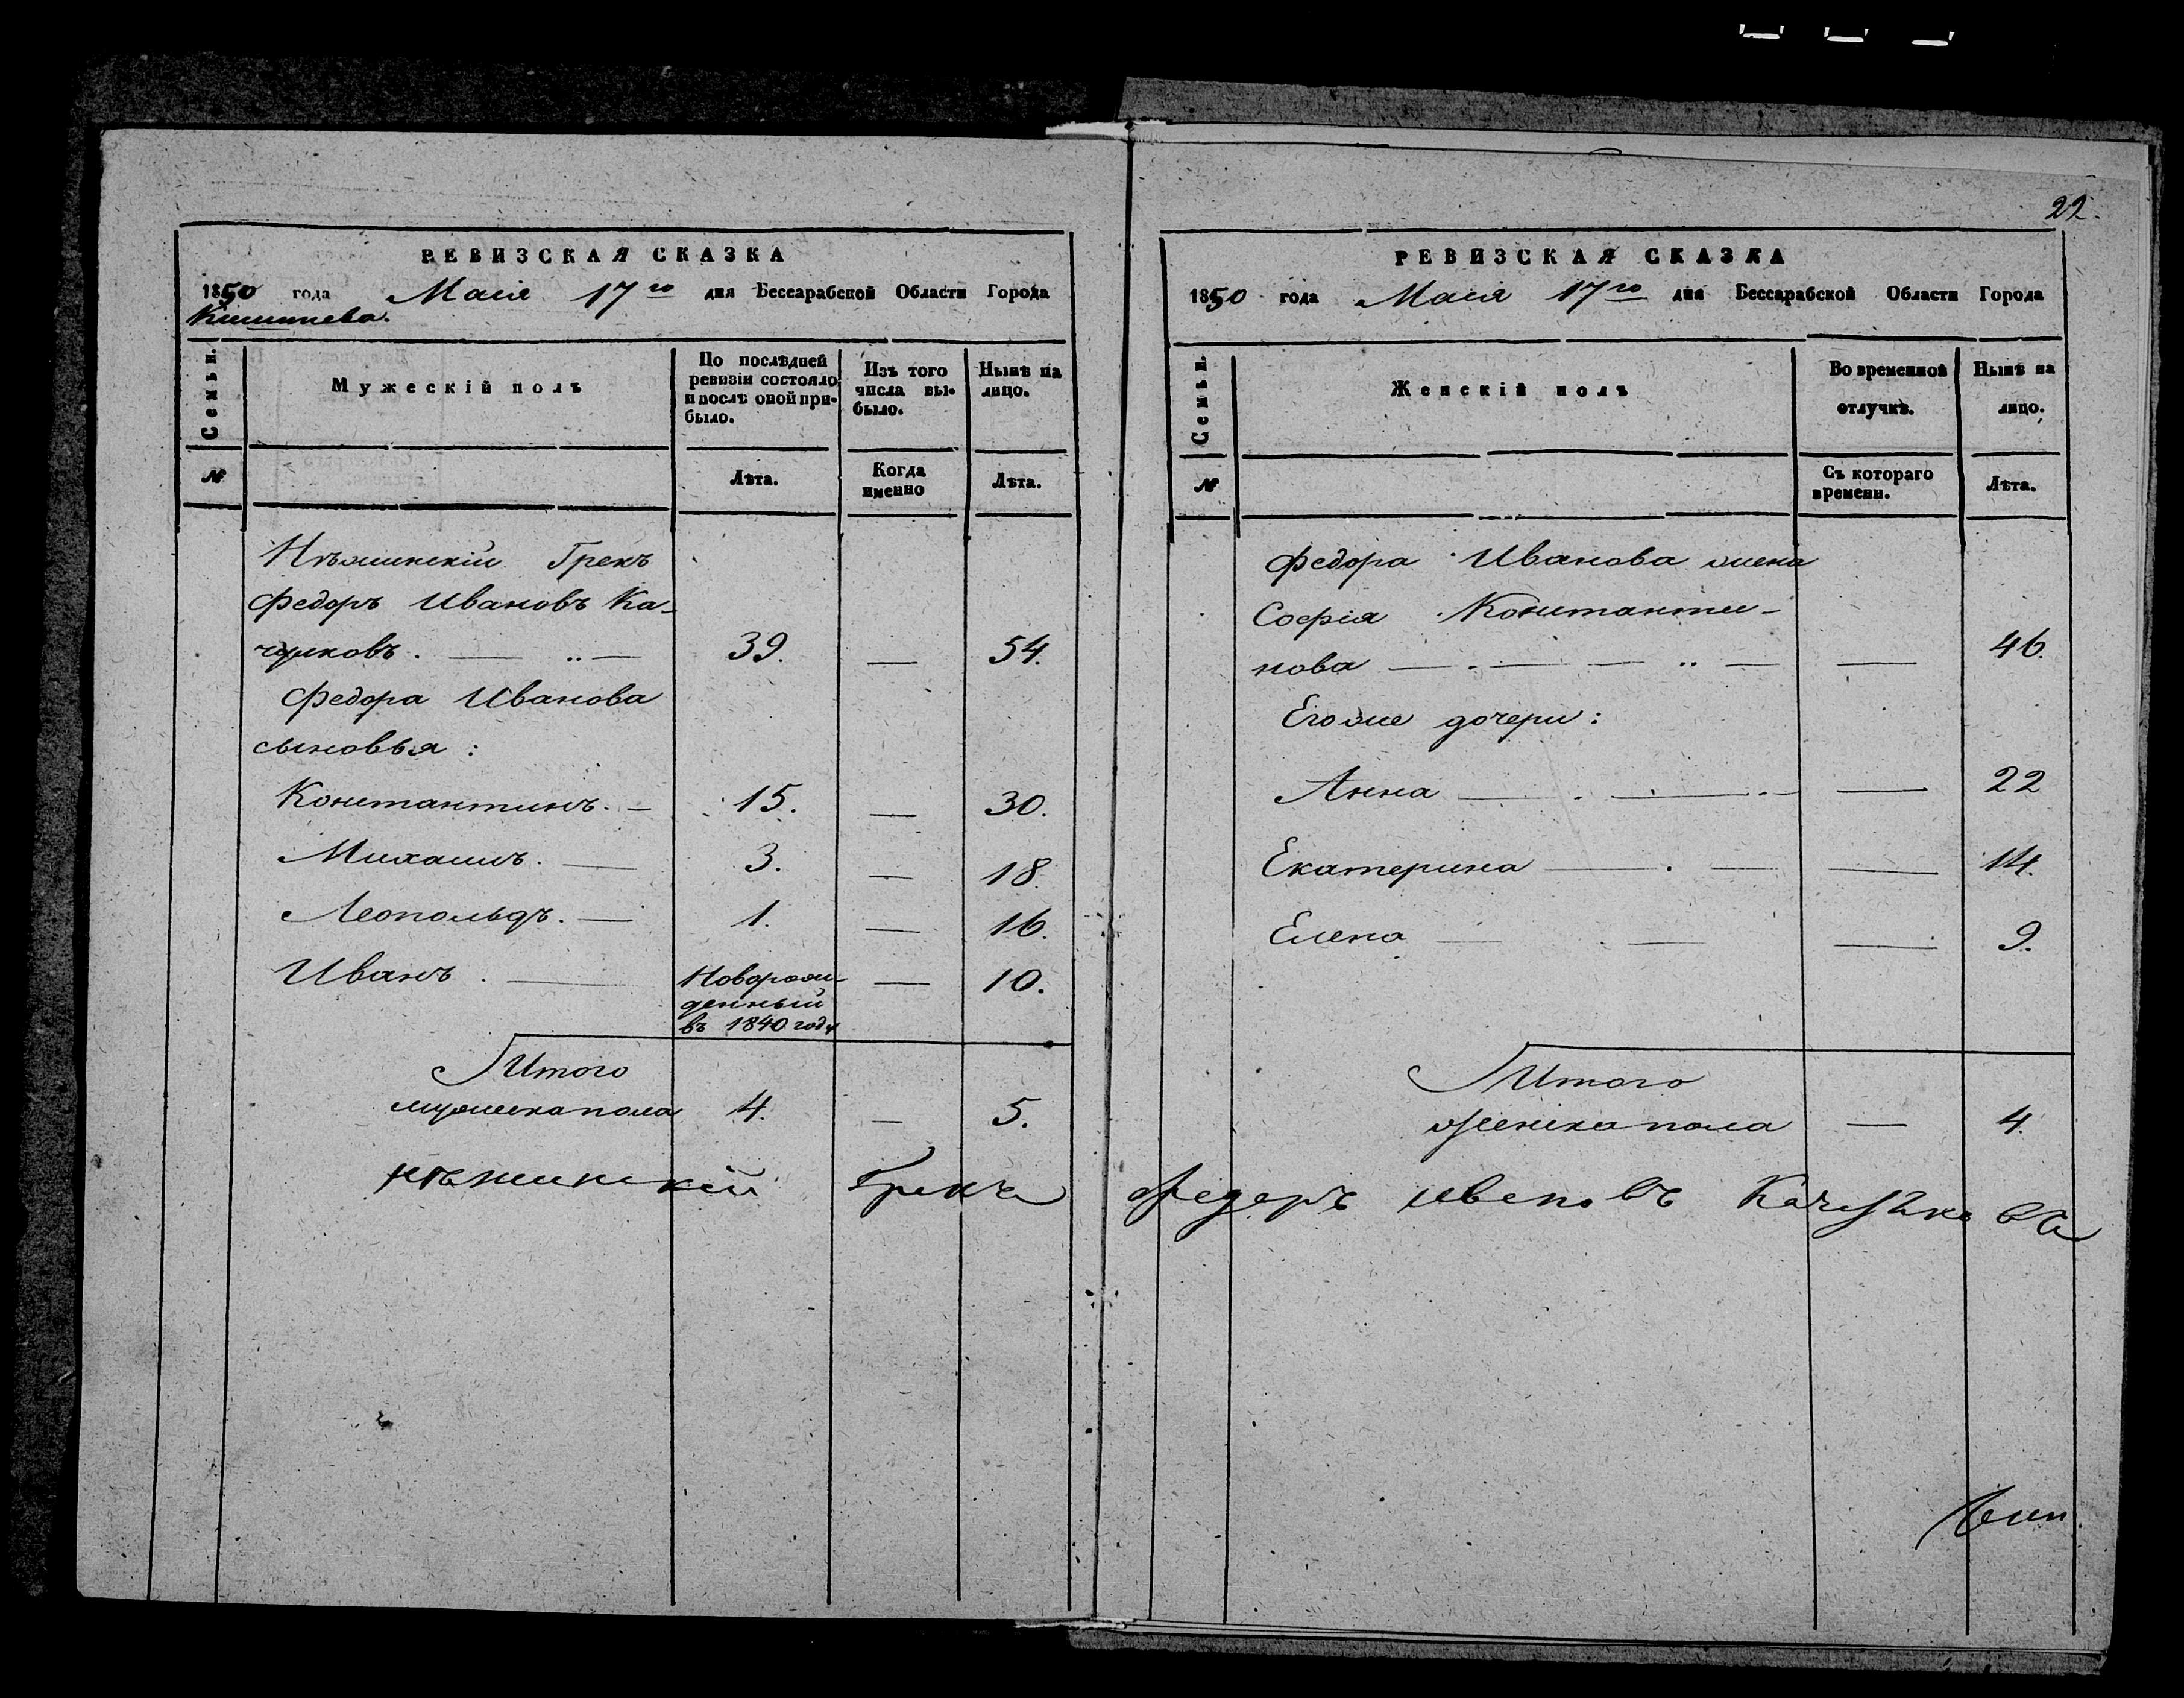 22.
РЕВИЗСКАЯ СКАЗКА
1850 года Маія 17го дня Бессарабской Области Города
Кишинева.
Семьи.
Мужескій полъ
По послѣдней
ревизіи состояло
и послѣ оной при-
было.
Изъ того
числа вы-
было.
Нынѣ на
лицо.
№
Лѣта.
Когда
именно
Лѣта.
Нѣжинскій Грекъ
Федоръ Ивановъ Ка-
чулковъ. — „ — 39. — 54.
Федора Иванова
сыновья:
Константинъ. — 15. — 30.
Михаилъ. — 3. — 18.
Леопольдъ. — 1. — 16.
Иванъ. — Новорож-
денный
въ 1840 году — 10.
Итого
мужеска пола 4. — 5.
РЕВИЗСКАЯ СКАЗКА
1850 года Маія 17го дня Бессарабской Области Города
Семьи.
Женскій полъ
Во временной
отлучкѣ.
Нынѣ на
лицо.
№
Съ котораго
времени.
Лѣта.
Федора Иванова жена
Софія Константи-
нова — — 46.
Егоже дочери:
Анна — — 22
Екатерина — — 14.
Елена — — 9.
Итого
женска пола — 4.
нѣжинскій Грекъ Федоръ ивановъ